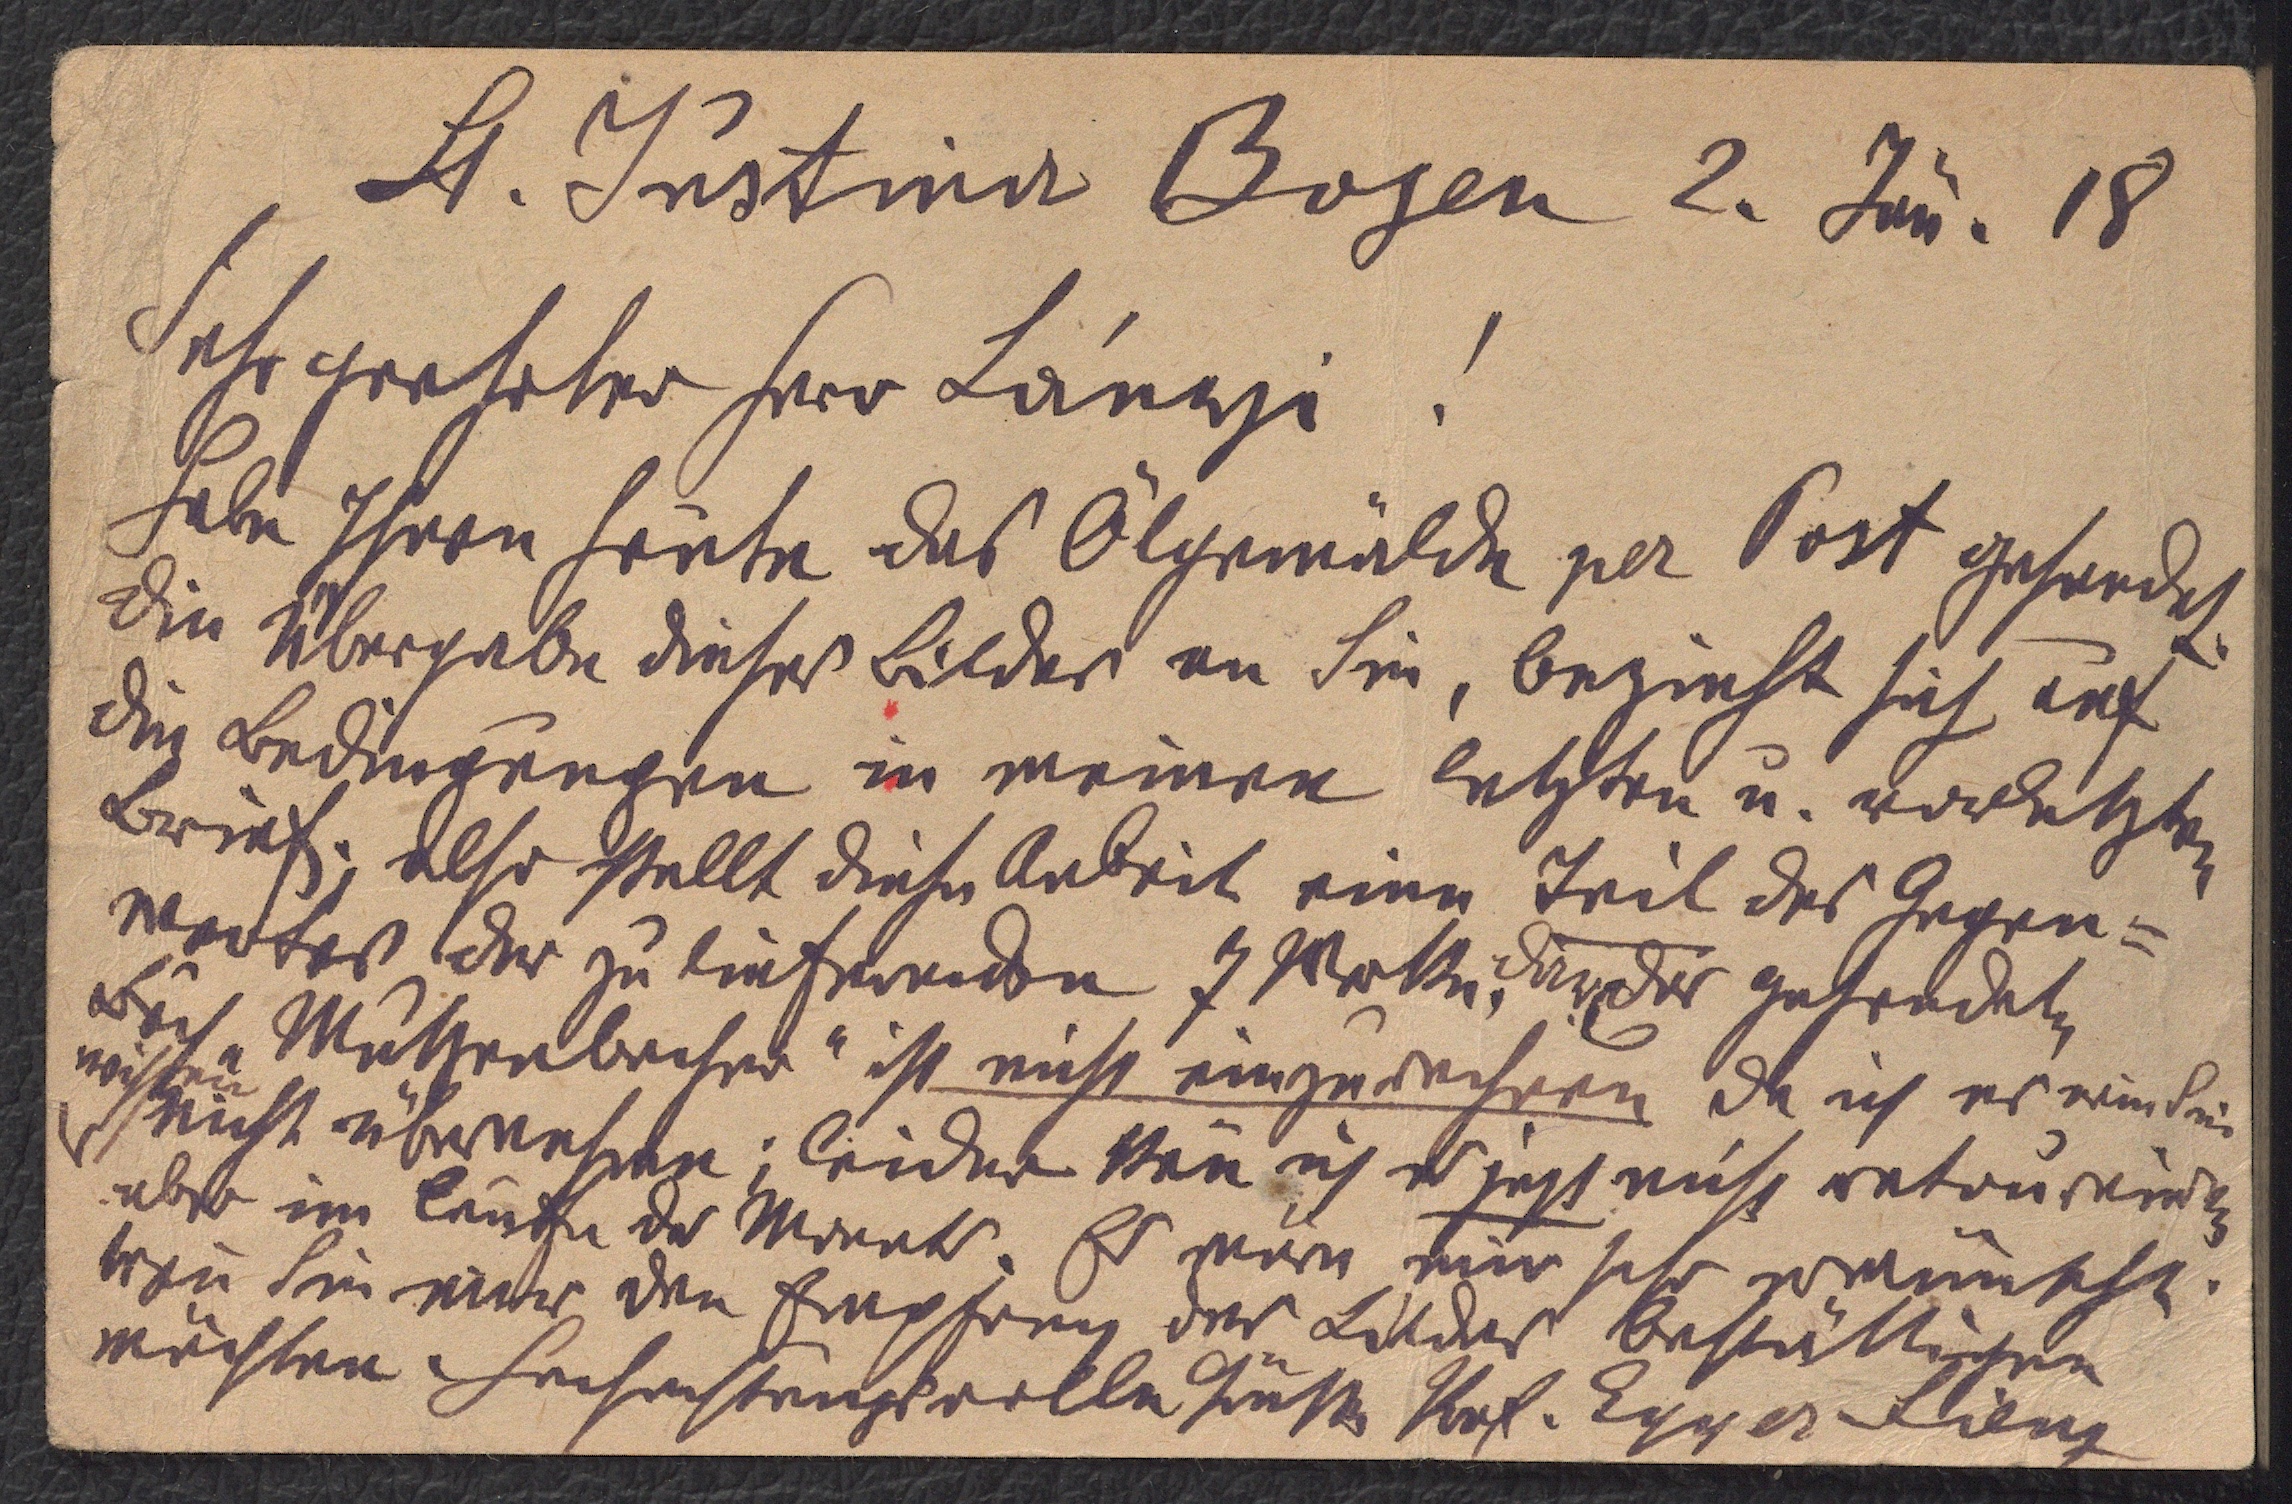 St. Justina Bozen 2. Jän. 18
Sehr geehrter Herr Lányi !
Habe Ihnen heute das Ölgemälde per Post gesendet.
Die Übergabe dieses Bildes an Sie, bezieht sich auf
die Bedingungen in meinen letzten u. vorletzten
Brief; also stellt diese Arbeit einen Teil des Gegen=
wertes der zu liefernden 7 Werke, dar, das gesendete
Buch „Mutzenbacher" ist nicht einzurechnen da ich es wie Sie
wissen
nicht übernehme; leider kan̄ ich es jetzt nicht retournieren
aber im Laufe des Monats. Es wäre mir sehr erwünscht.
wen̄ Sie mir den Empfang des Bildes bestättigen
möchten. Hochachtungsvolle Grüße Prof. Egger-Lienz